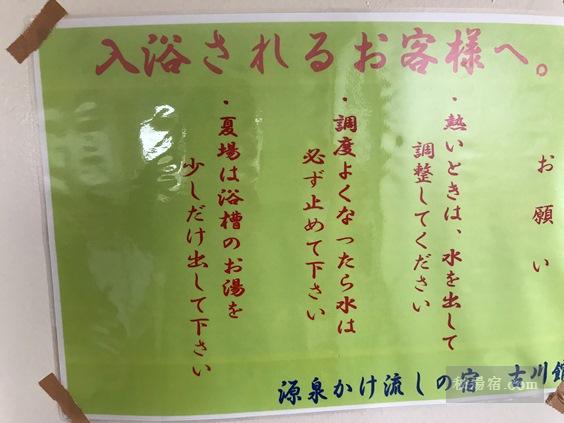 入浴されるお客様へ。
お願い
・熱いときは、水を出して
調整してください
・調度よくなったら水は
必ず止めて下さい
・夏場は浴槽のお湯を
少しだけ出して下さい
源泉かけ流しの宿 古川館
秘湯宿.com